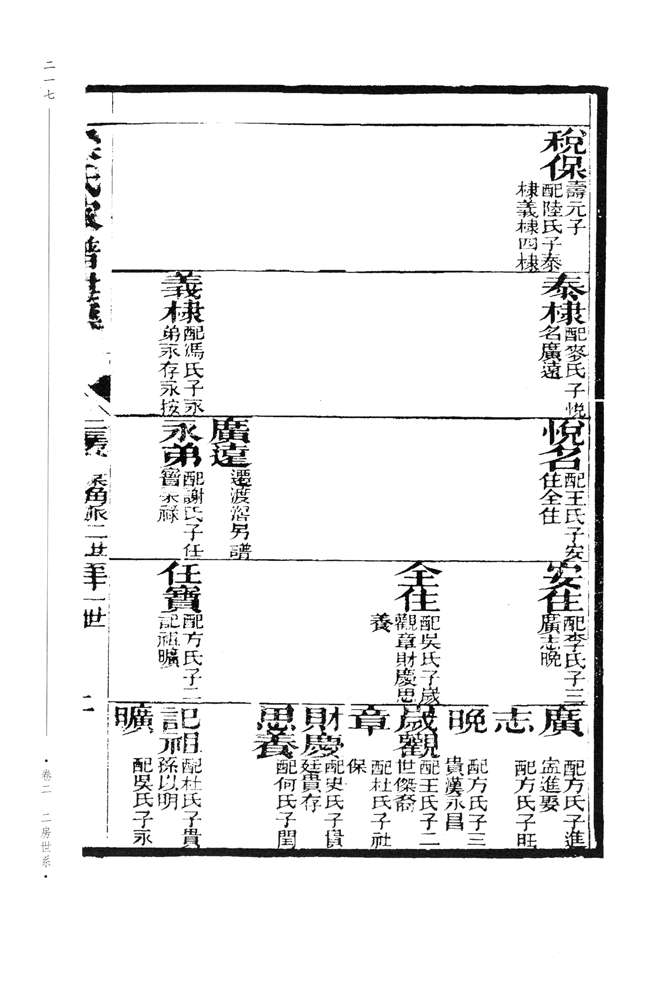 二一七
稅保
壽元子
配陸氏子泰
棣義棣四棣
泰棣
配麥氏子悅
名廣遠
義棣
配馮氏子永
弟永存永按
悅名
配王氏子安
住全住
廣遠
遷渡滘另譜
永弟
配謝氏子任
寶榮祿
安住
配李氏子三
廣志晚
全住
配吳氏子歲
觀章財慶思
養
任寶
配方氏子二
記祖曠
廣
配方氏子進
孟進晏
志
配方氏子旺
晚
配方氏子三
貴漢永昌
歲觀
配王氏子二
世傑裔
章
配杜氏子社
保
財慶
配史氏子貴
廷貴存
思養
配何氏子閏
記祖
配杜氏子貴
孫以明
曠
配吳氏子永
氏家譜世系
二房
角派二世至十一世
二
卷二 二房世系